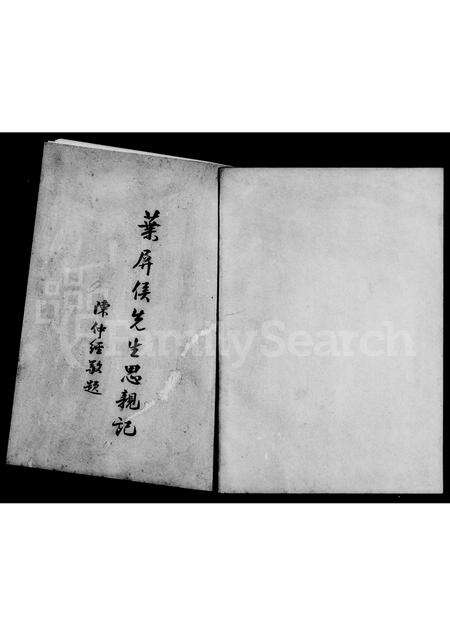 葉屏侯先生思親記
陳仲經敬題
FamilySearch